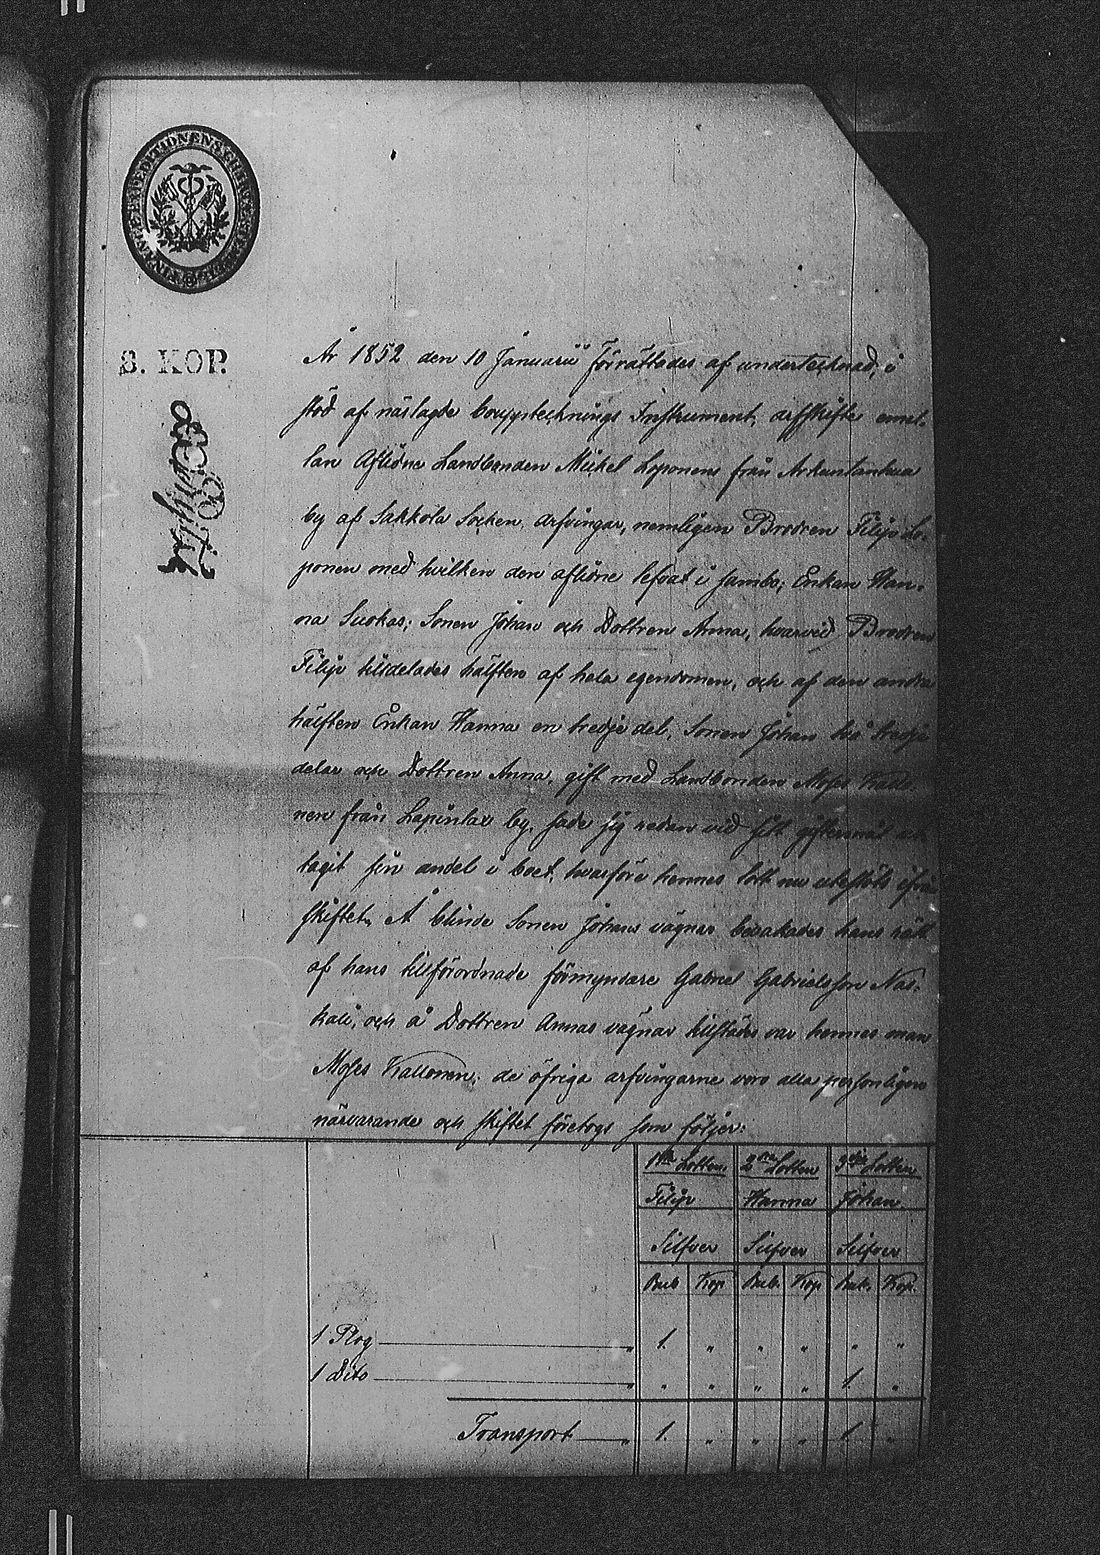 S. KOP.
År 1852 den 10 Januarii förrättades af undertecknad, i
stöd af näslagde bouppteknings Instrument, arfskifte emel-
lan Aflidne Landbonden Mickel Loponens från Arkuntanhua
by af Sakkola Socken, arfvingar, nemligen Brodren Filip Lo-
ponen med hvilken den aflidne lefvat i sambo; Enkan Han-
na Suokas; Sonen Johan och Dottren Anna, hvarvid Brodren
Filip tilldelades hälften af hela egendomen, och af den andra
hälften Enkan Hanna en tredje del, Sonen Johan två tredje
delar och Dottren Anna, gift med Landbonden Moses Kallo-
nen från Lapinlax by, hade sig redan vid sitt giftermål ut-
tagit sin andel i boet, hvarföre hennes lott nu uteslöts ifrån
skiftet. Å blinde Sonen Johans vägnar bevakades hans rätt
af hans tillförordnade förmyndare Gabriel Gabrielsson Nas-
kali, och å Dottren Annas vägnar tillstädes var hennes man
Moses Kallonen; de öfriga arfvingarne voro alla personligen
närvarande och skiftet företogs som följer:
1sta Lotten. 2dra Lotten 3dje Lotten
Filip Hanna Johan.
Silfver Silfver Silfver
Rub. Kop. Rub. Kop. Rub. Kop.
1 Plog " 1. " " " " "
1 Dito " " " " " 1. "
Transport " 1. " " " 1. "